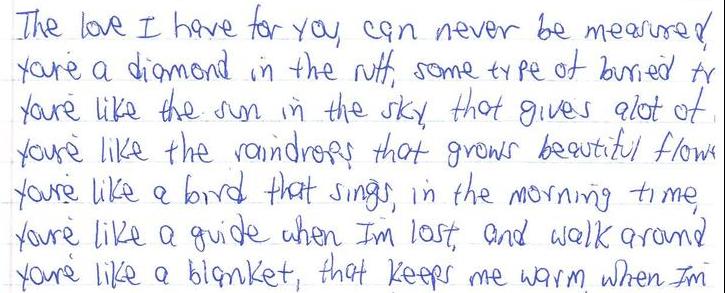 The love I have for you, can never be measured,
You're a diamond in the ruff, some type of buried tr
You're like the sun in the sky, that gives alot of
You're like the raindrops that grows beautiful flow
You're like a bird that sings, in the morning time,
You're like a guide when I'm lost, and walk around
You're like a blanket, that keeps me warm when I'm